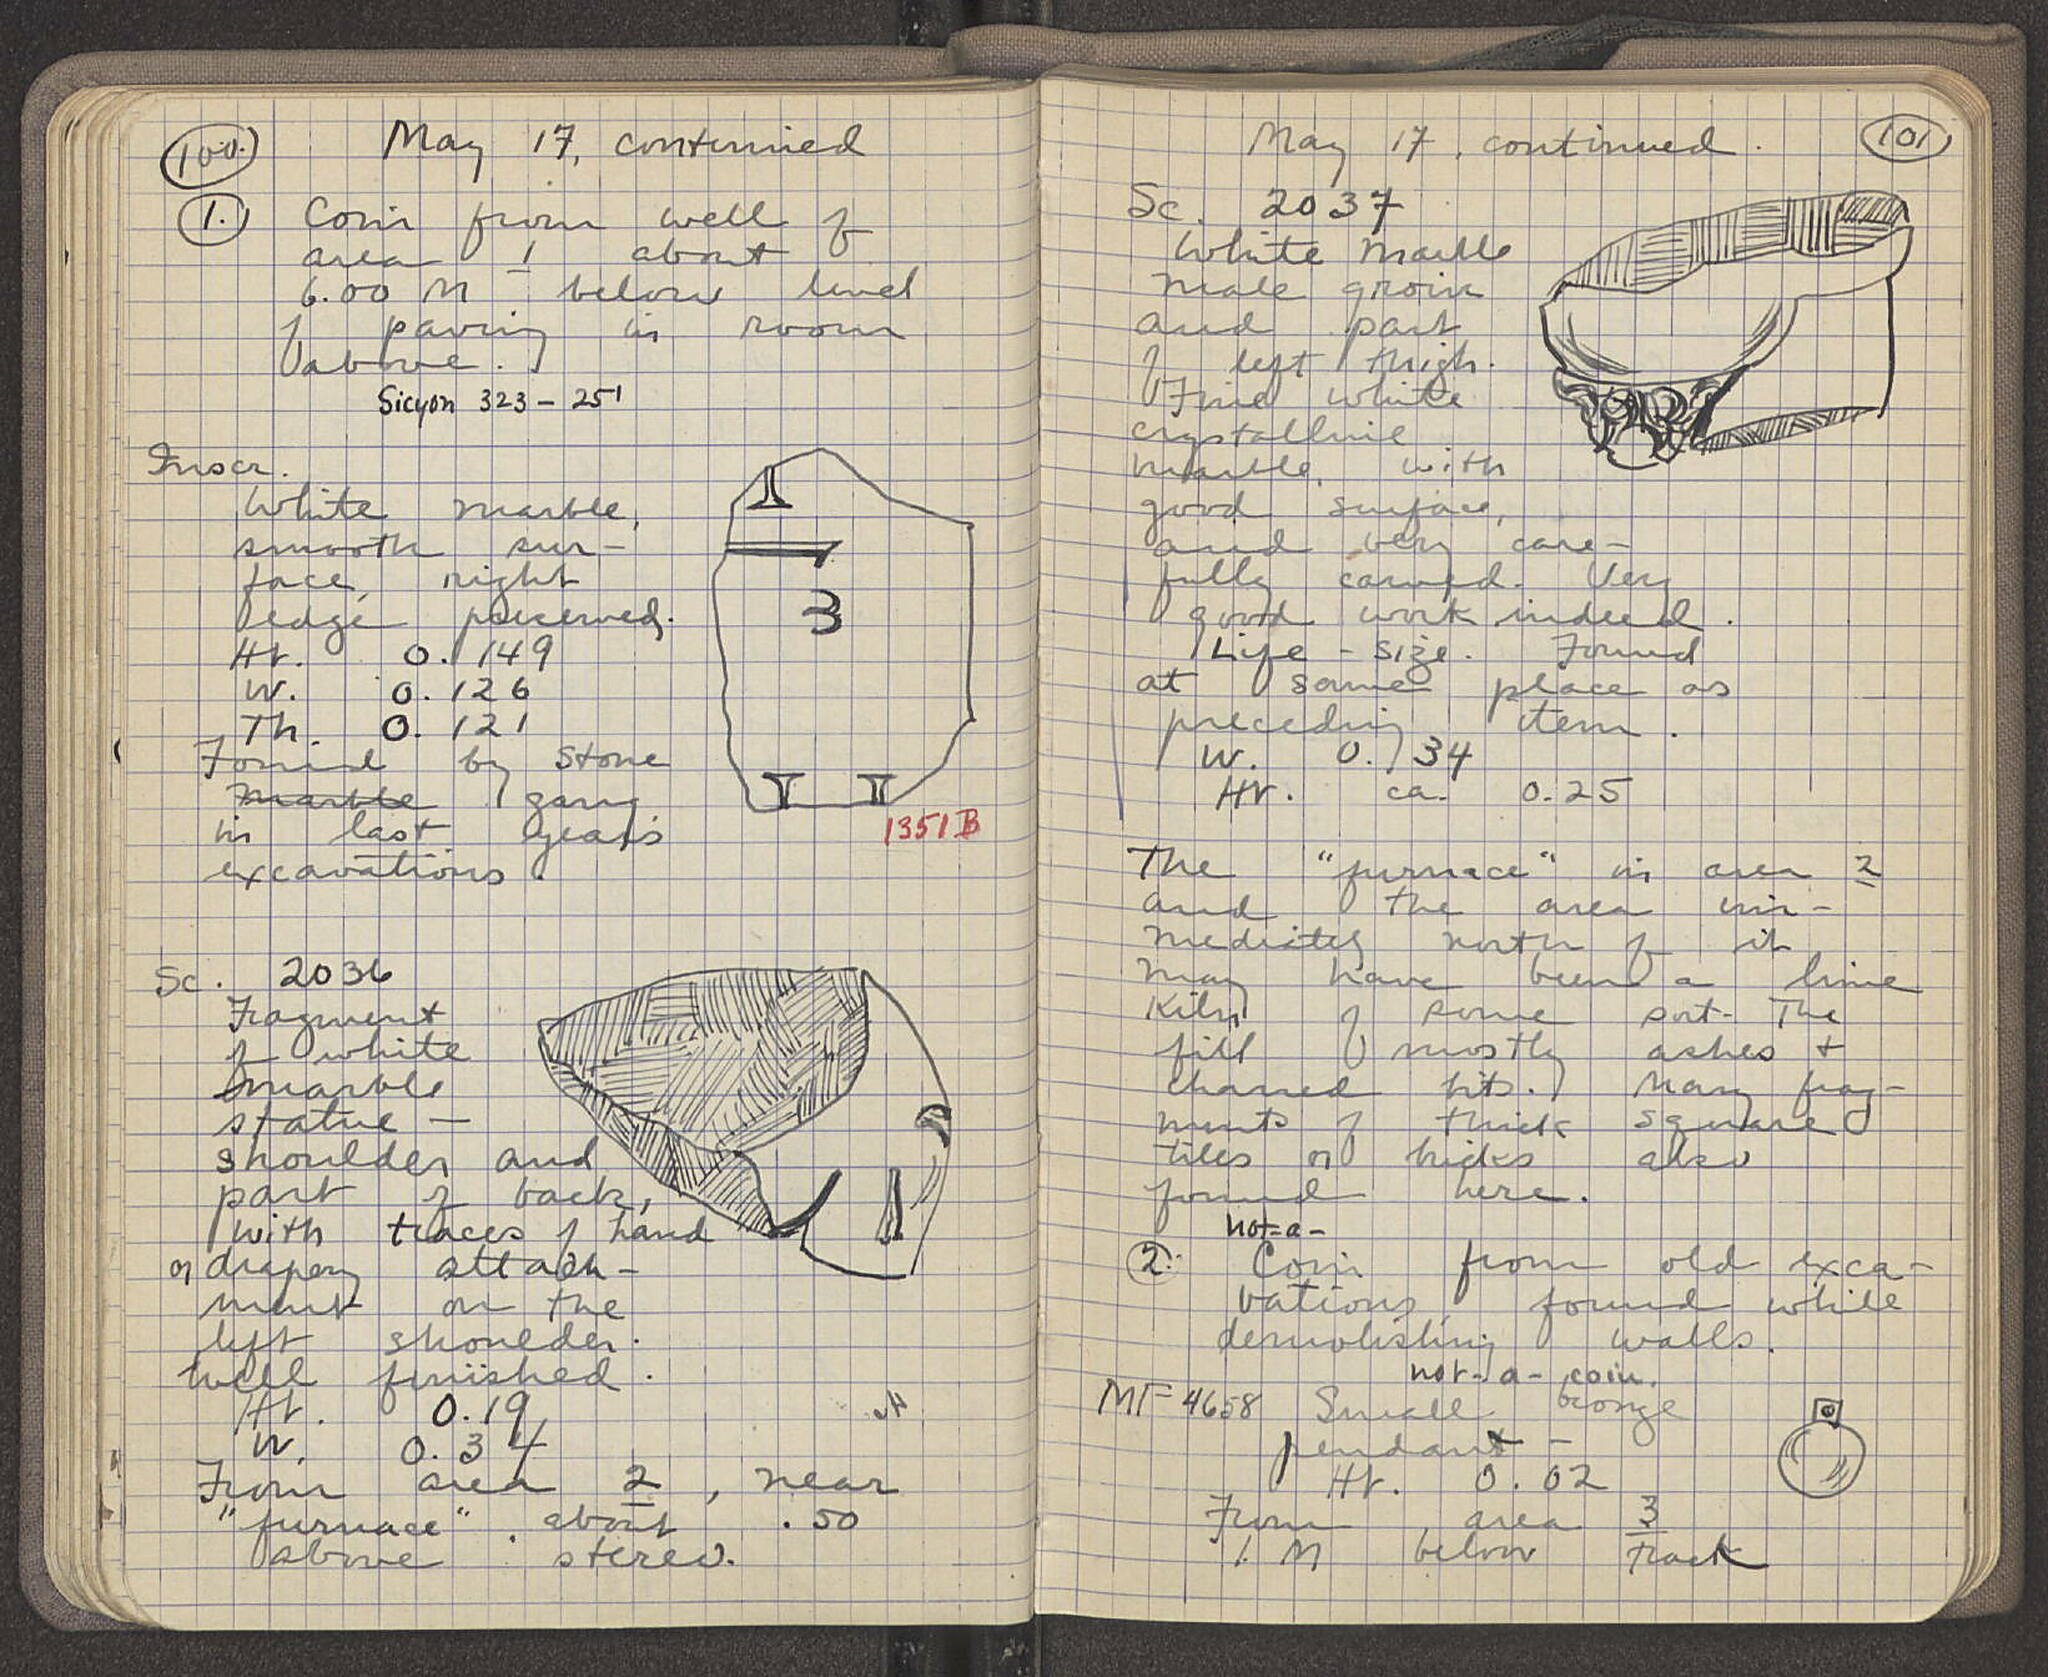 100.
May 17, continued
1. Coin from well of
area 1 about
6.00 M below level
of paving in room
above.
Sicyon 323-251
Inscr.
White marble,
smooth sur-
face, right
edge preserved.
Ht. 0.149
W. 0.126
Th. 0.121
Found by stone
marble gang
in last year's
excavations.
1351 B
Sc. 2036
Fragment
of white
marble
statue —
shoulder and
part of back,
with traces of hand
or drapery attach-
ment on the
left shoulder.
Well finished.
Ht. 0.19
W. 0.34
From area 2, near
"furnace". about .50
above stereo.
May 17, continued.
101
Sc. 2037
White marble
male groin
and part
of left thigh.
Fine white
crystalline
marble, with
good surface,
and very care-
fully carved. Very
good work indeed.
Life-size. Found
at same place as
preceding item.
W. 0.34
Ht. ca. 0.25
The "furnace" in area 2
and the area im-
mediately north of it
may have been a lime
kiln of some sort. The
fill of mostly ashes +
charred bits. Many frag-
ments of thick square
tiles or bricks also
found here.
not-a-
2. Coin from old exca-
vations, found while
demolishing walls.
not-a-coin.
MF 4658 Small bronze
pendant —
Ht. 0.02
From area 3
1. M below track